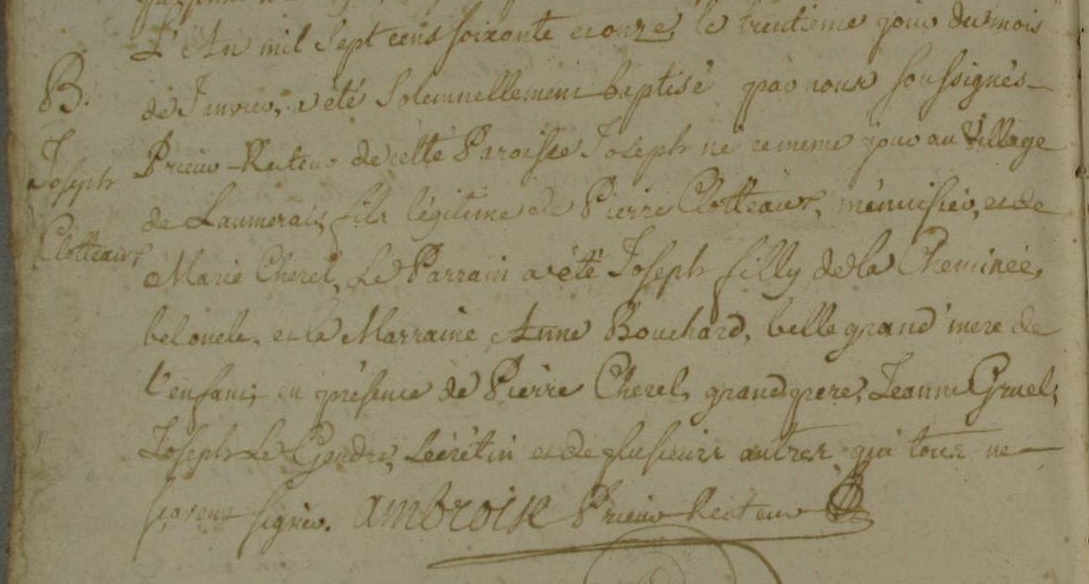 L'An mil Sept cens soixante et onze, le trentieme jour du mois
B. de Janvier, a été Solemnellement baptisé par nous soussignés
Joseph Prieur-Recteur de cette Paroisse Joseph né ce meme jour au Village
de Laumerais, fils légitime de Pierre Clotteaux, ménuisier, et de
Clotteaux Marie Cherel, Le Parrain a été Joseph filly de la Cheminée,
bel oncle, et la Marraine Anne Bouchard, belle grand'mere de
l'enfant; en présence de Pierre Cherel, grand pere, Jeanne Gruel,
Joseph Le Gendre, Secrétin et de plusieurs autres qui tous ne
scavent signer. ambroise Prieur Recteur